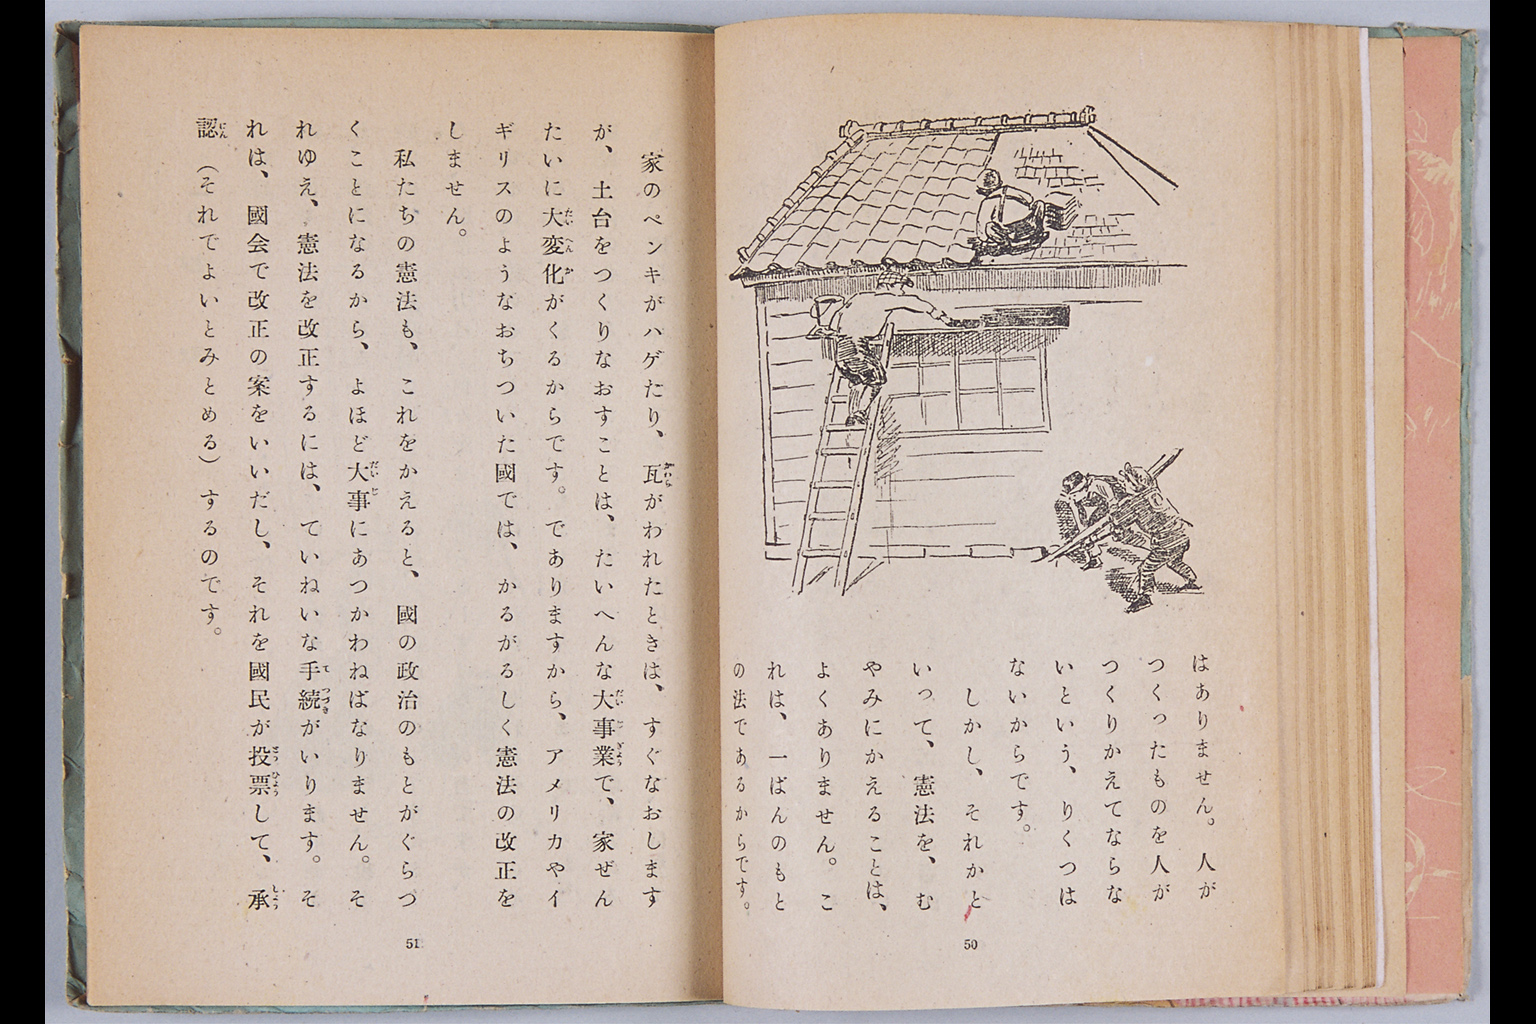 はありません。人が
つくったものを人が
つくりかえてならな
いという、りくつは
ないからです。
しかし、それかと
いって、憲法を、む
やみにかえることは、
よくありません。こ
れは、一ばんのもと
の法であるからです。
50
家のペンキがハゲたり、瓦がわれたときは、すぐなおします
が、土台をつくりなおすことは、たいへんな大事業で、家ぜん
たいに大変化がくるからです。でありますから、アメリカやイ
ギリスのようなおちついた國では、かるがるしく憲法の改正を
しません。
私たちの憲法も、これをかえると、國の政治のもとがぐらつ
くことになるから、よほど大事にあつかわねばなりません。そ
れゆえ、憲法を改正するには、ていねいな手続がいります。そ
れは、國会で改正の案をいいだし、それを國民が投票して、承
認（それでよいとみとめる）するのです。
51